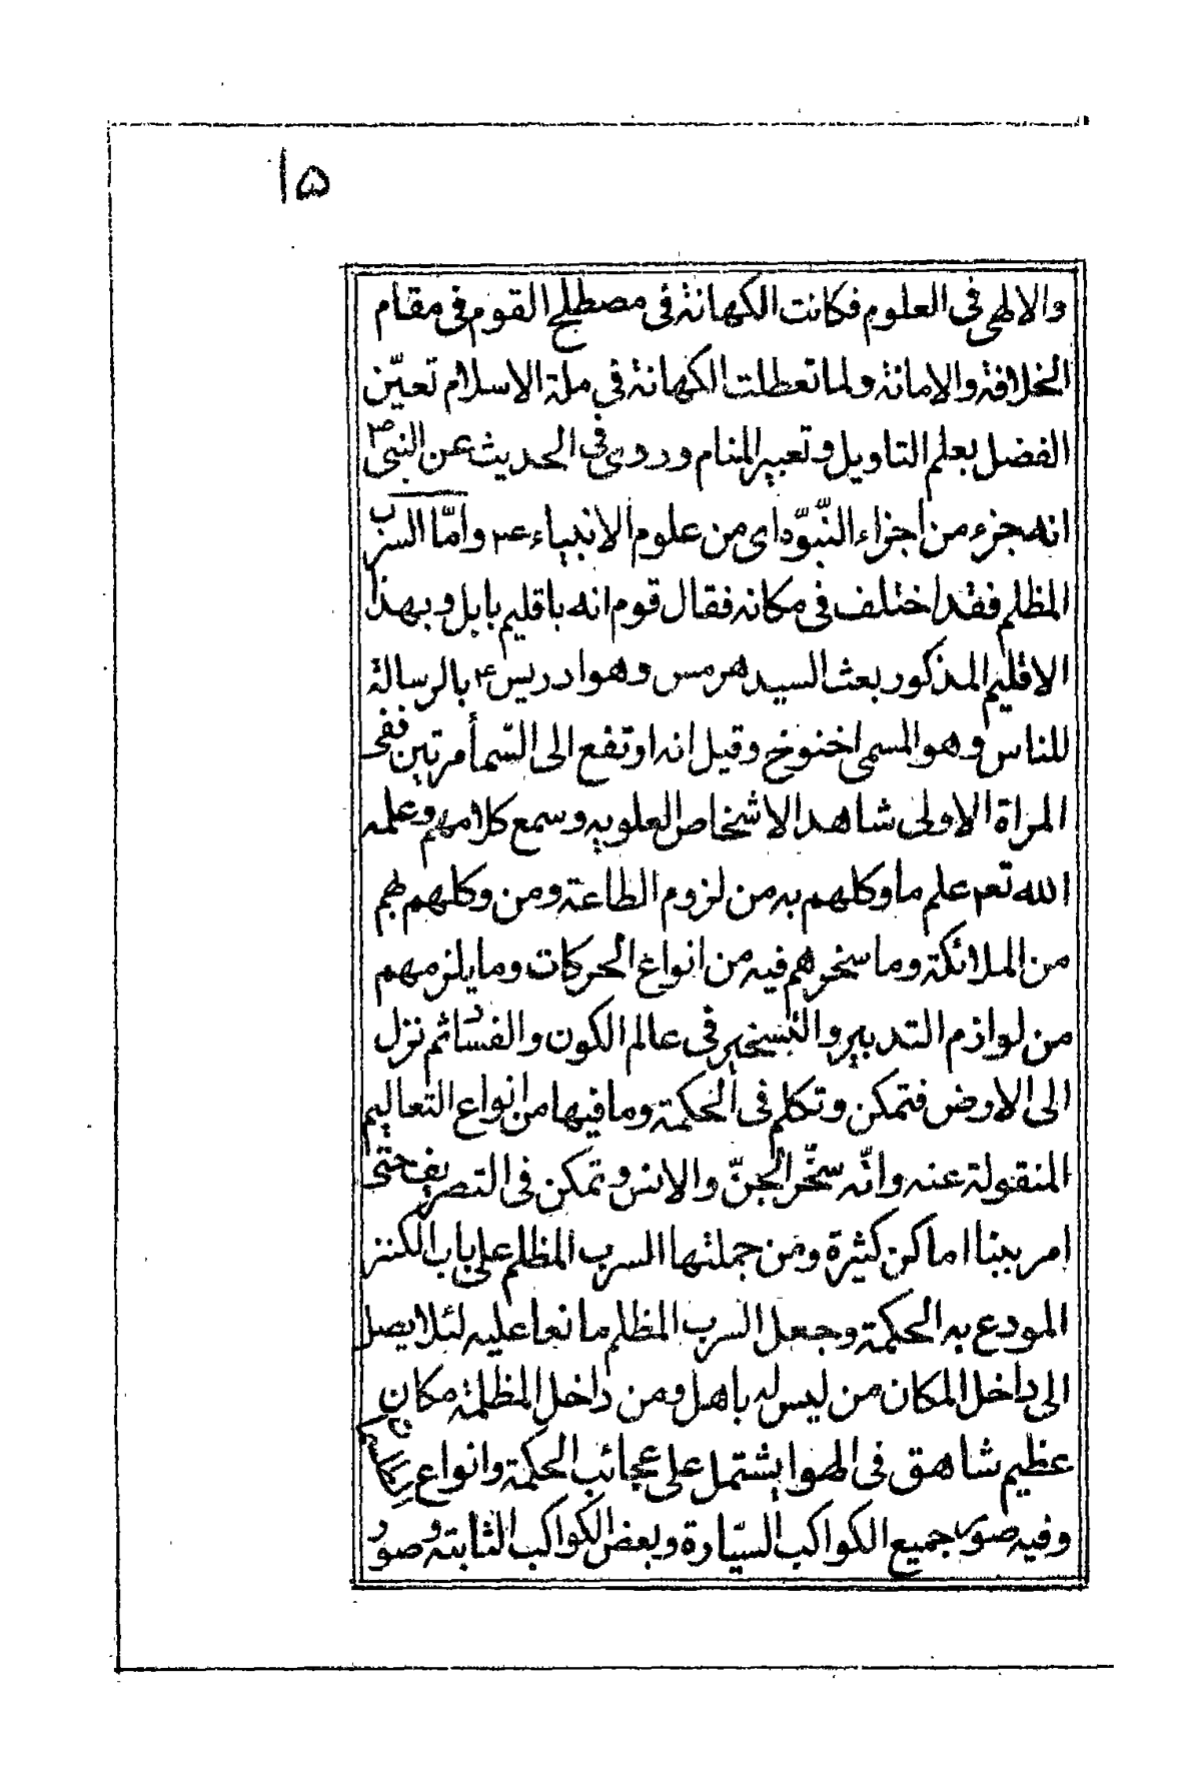 ١۵
والالهى فى العلوم فكانت الكهانة فى مصطلح القوم فى مقام
الخلافة والامانة ولما تعطلت الكهانة فى ملة الاسلام تعيّن
الفضل بعلم التاويل وتعبير المنام وروى فى الحديث عن النبى ص
انه جزء من اجزاء النّبوّة اى من علوم الانبياء ع وامّا السرب
المظلم فقد اختلف فى مكانه فقال قوم انه باقليم بابل وبهذا
الاقليم المذكور بعث السيد هرمس وهو ادريس ع بالرسالة
للناس وهو المسمى اخنوخ وقيل انه اوتفع الى السّمأ مرتين ففى
المراة الاولى شاهد الاشخاص العلويه وسمع كلامهم وعلمه
الله تعم علم ما وكلهم به من لزوم الطاعة ومن وكلهم بهم
من الملائكة وما سخرهم فيه من انواع الحركات وما يلزمهم
من لوازم التدبير والتسخير فى عالم الكون والفساد ثم نزل
الى الاوض فتمكن وتكلم فى الحكمة وما فيها من انواع التعاليم
المنقولة عنه وانّه سخّر الجنّ والانس وتمكن فى التصريف حتى
امر ببنا اماكن كثيرة ومن جملتها السرب المظلم على باب الكنز
المودع به الحكمة وجعل السرب المظلم مانعا عليه لئلا يصل
الى داخل المكان من ليس له باهل ومن داخل المظلمة مكان
عظيم شاهق فى الهوا يشتمل على عجائب الحكمة وانواع
وفيه صور جميع الكواكب السّيّارة وبعض الكواكب الثابتة وصور